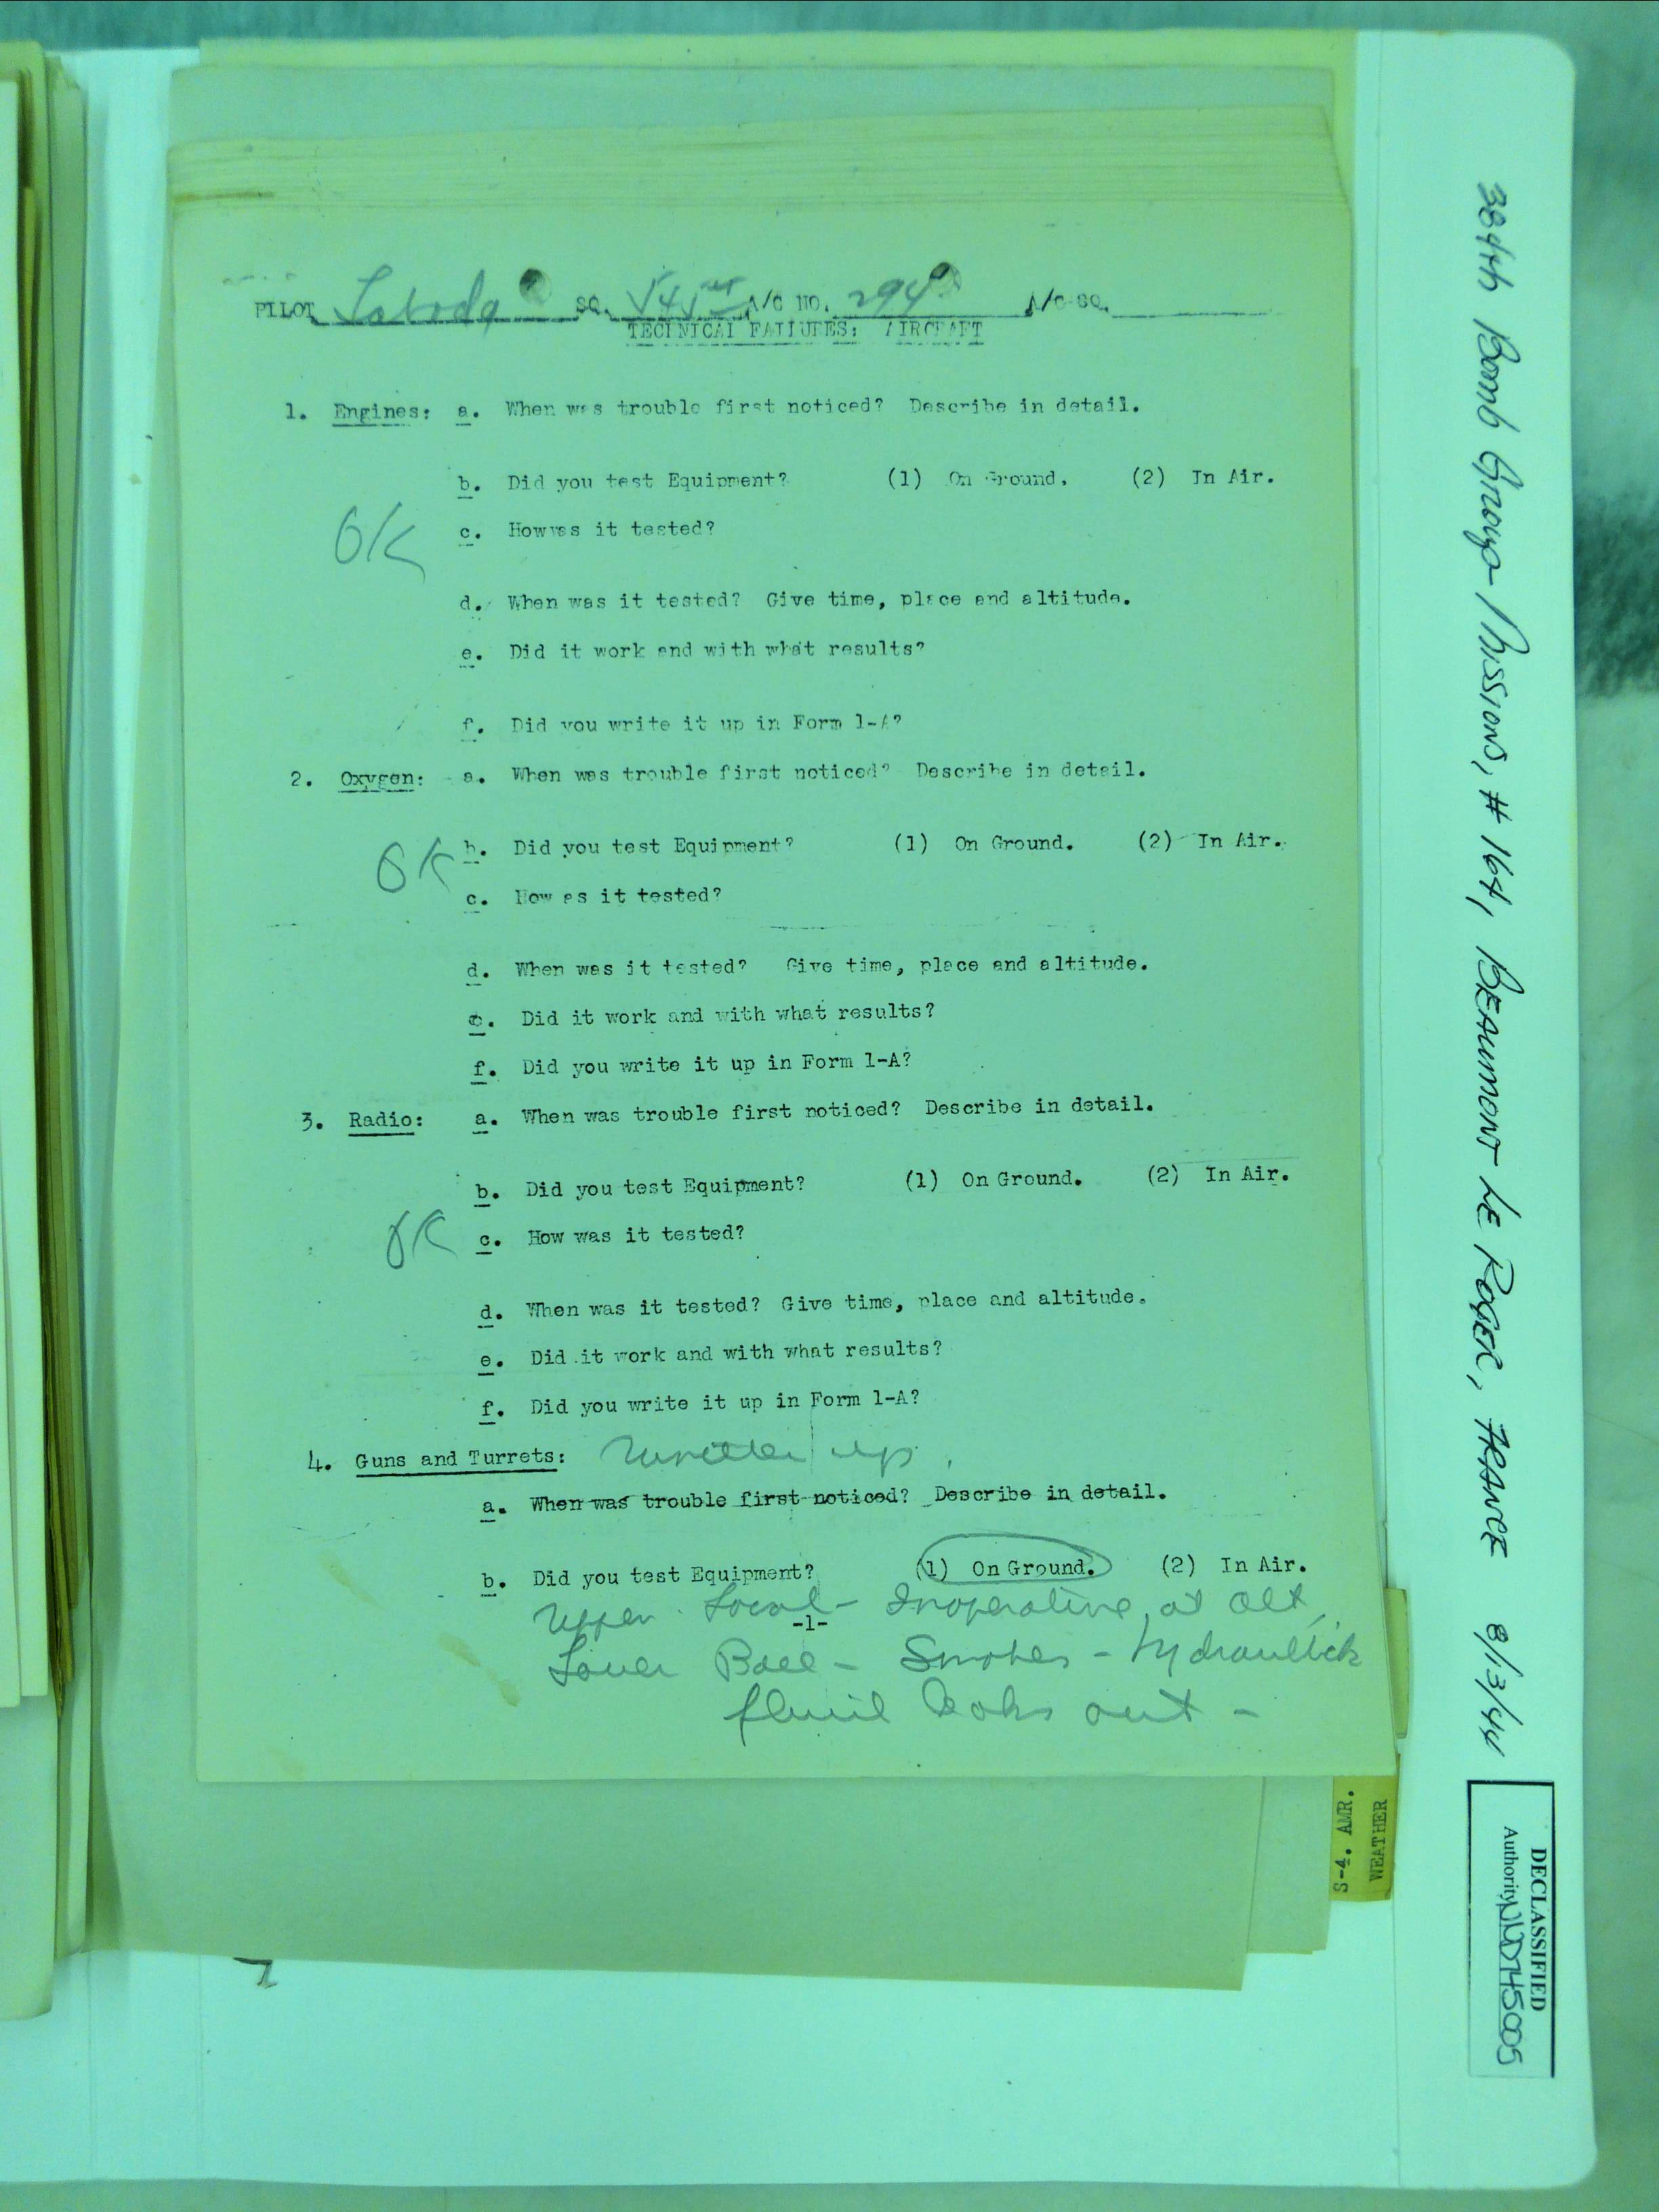 PILOT Laboda SQ. 545th A/C NO. 294 A/C SQ.
TECHNICAL FAILURES: AIRCRAFT
1. Engines: a. When was trouble first noticed? Describe in detail.
b. Did you test Equipment? (1) On Ground. (2) In Air.
OK
c. How was it tested?
d. When was it tested? Give time, place and altitude.
e. Did it work and with what results?
f. Did you write it up in Form 1-A?
2. Oxygen: a. When was trouble first noticed? Describe in detail.
OK
b. Did you test Equipment? (1) On Ground. (2) In Air.
c. How as it tested?
d. When was it tested? Give time, place and altitude.
e. Did it work and with what results?
f. Did you write it up in Form 1-A?
3. Radio: a. When was trouble first noticed? Describe in detail.
b. Did you test Equipment? (1) On Ground. (2) In Air.
OK
c. How was it tested?
d. When was it tested? Give time, place and altitude.
e. Did it work and with what results?
f. Did you write it up in Form 1-A?
4. Guns and Turrets: Written up.
a. When was trouble first noticed? Describe in detail.
b. Did you test Equipment? (1) On Ground. (2) In Air.
Upper Local - Inoperative at Alt
-1-
Lower Ball - Smokes - Hydraullick
fluid leaks out -
384th Bomb Group - Missions, # 164, BEAUMONT LE ROGER, FRANCE 8/13/44
DECLASSIFIED
Authority NND745005
S-4. AMR.
WEATHER